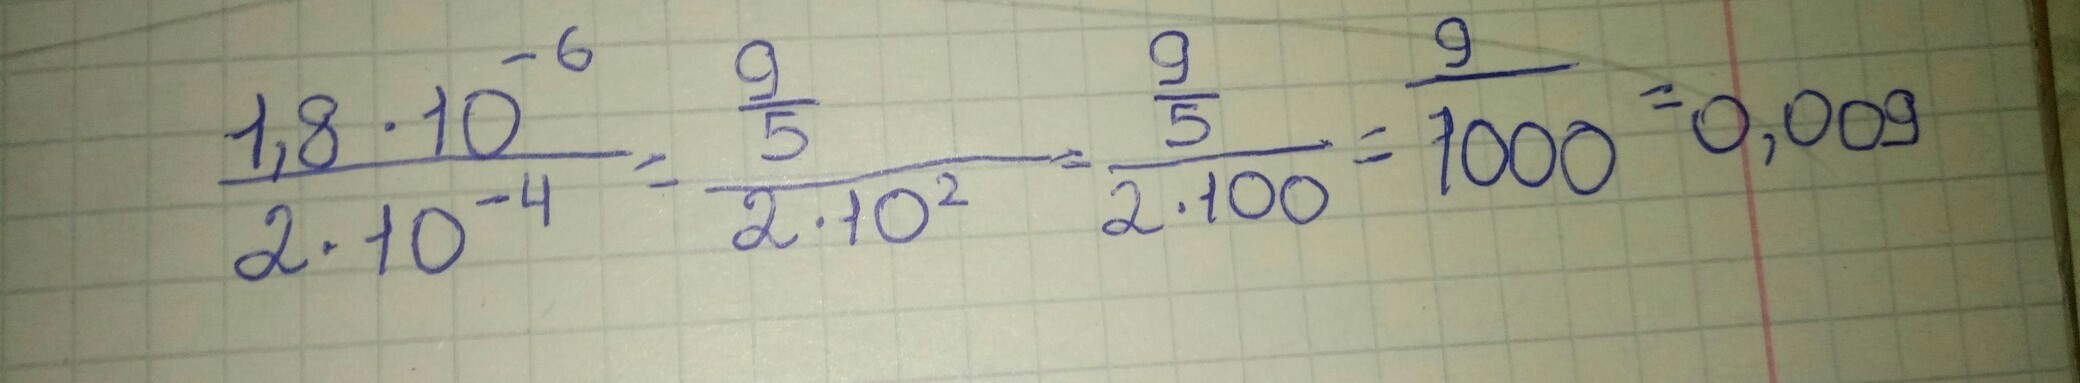 1,8 · 10⁻⁶ / 2 · 10⁻⁴ = 9/5 / 2 · 10² = 9/5 / 2 · 100 = 9/1000 = 0,009